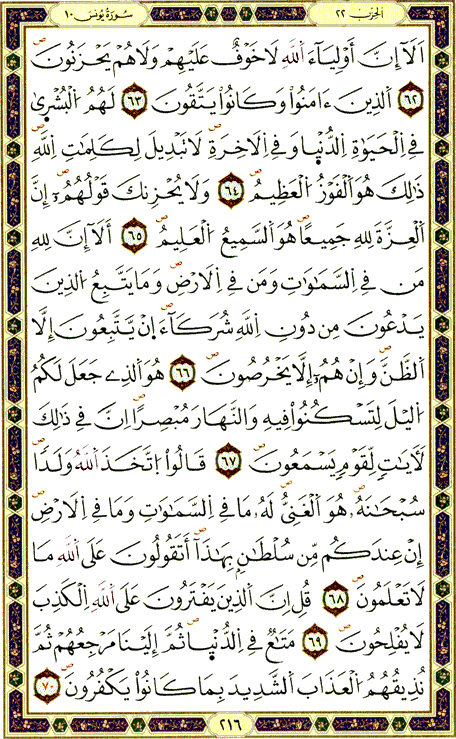 الحزب ٢٢
سُورَةُ يُونُسَ ١٠
اَلَآ إِنَّ أَوْلِيَآءَ اَ۬للَّهِ لَا خَوْفٌ عَلَيْهِمْ وَلَا هُمْ يَحْزَنُونَ
٦٢ اَ۬لذِينَ ءَامَنُواْ وَكَانُواْ يَتَّقُونَ ٦٣ لَهُمُ اُ۬لْبُشْر۪ىٰ
فِے اِ۬لْحَيَوٰةِ اِ۬لدُّنْي۪ا وَفِے اِ۬لَاخِرَةِ لَا تَبْدِيلَ لِكَلِمَٰتِ اِ۬للَّهِ
ذَٰلِكَ هُوَ اَ۬لْفَوْزُ اُ۬لْعَظِيمُ ٦٤ وَلَا يُحْزِنكَ قَوْلُهُمُۥٓ إِنَّ
اَ۬لْعِزَّةَ لِلهِ جَمِيعاً هُوَ اَ۬لسَّمِيعُ اُ۬لْعَلِيمُ ٦٥ أَلَآ إِنَّ لِلهِ
مَن فِے اِ۬لسَّمَٰوَٰتِ وَمَن فِے اِ۬لَارْضِ وَمَا يَتَّبِعُ اُ۬لذِينَ
يَدْعُونَ مِن دُونِ اِ۬للَّهِ شُرَكَآءَ اِنْ يَّتَّبِعُونَ إِلَّا
اَ۬لظَّنَّ وَإِنْ هُمُۥٓ إِلَّا يَخْرُصُونَ ٦٦ هُوَ اَ۬لذِے جَعَلَ لَكُمُ
اُ۬ليْلَ لِتَسْكُنُواْ فِيهِ وَالنَّهَارَ مُبْصِراً اِنَّ فِے ذَٰلِكَ
لَأٓيَٰتٖ لِّقَوْمٖ يَسْمَعُونَ ٦٧ قَالُواْ اُ۪تَّخَذَ اَ۬للَّهُ وَلَداٗ
سُبْحَٰنَهُۥ هُوَ اَ۬لْغَنِيُّ لَهُۥ مَا فِے اِ۬لسَّمَٰوَٰتِ وَمَا فِے اِ۬لَارْضِ
إِنْ عِندَكُم مِّن سُلْطَٰنِۢ بِهَٰذَآ أَتَقُولُونَ عَلَى اَ۬للَّهِ مَا
لَا تَعْلَمُونَ ٦٨ قُلِ اِنَّ اَ۬لذِينَ يَفْتَرُونَ عَلَى اَ۬للَّهِ اِ۬لْكَذِبَ
لَا يُفْلِحُونَ ٦٩ مَتَٰعٞ فِے اِ۬لدُّنْي۪ا ثُمَّ إِلَيْنَا مَرْجِعُهُمْ ثُمَّ
نُذِيقُهُمُ اُ۬لْعَذَابَ اَ۬لشَّدِيدَ بِمَا كَانُواْ يَكْفُرُونَ ٧٠
٢١٦